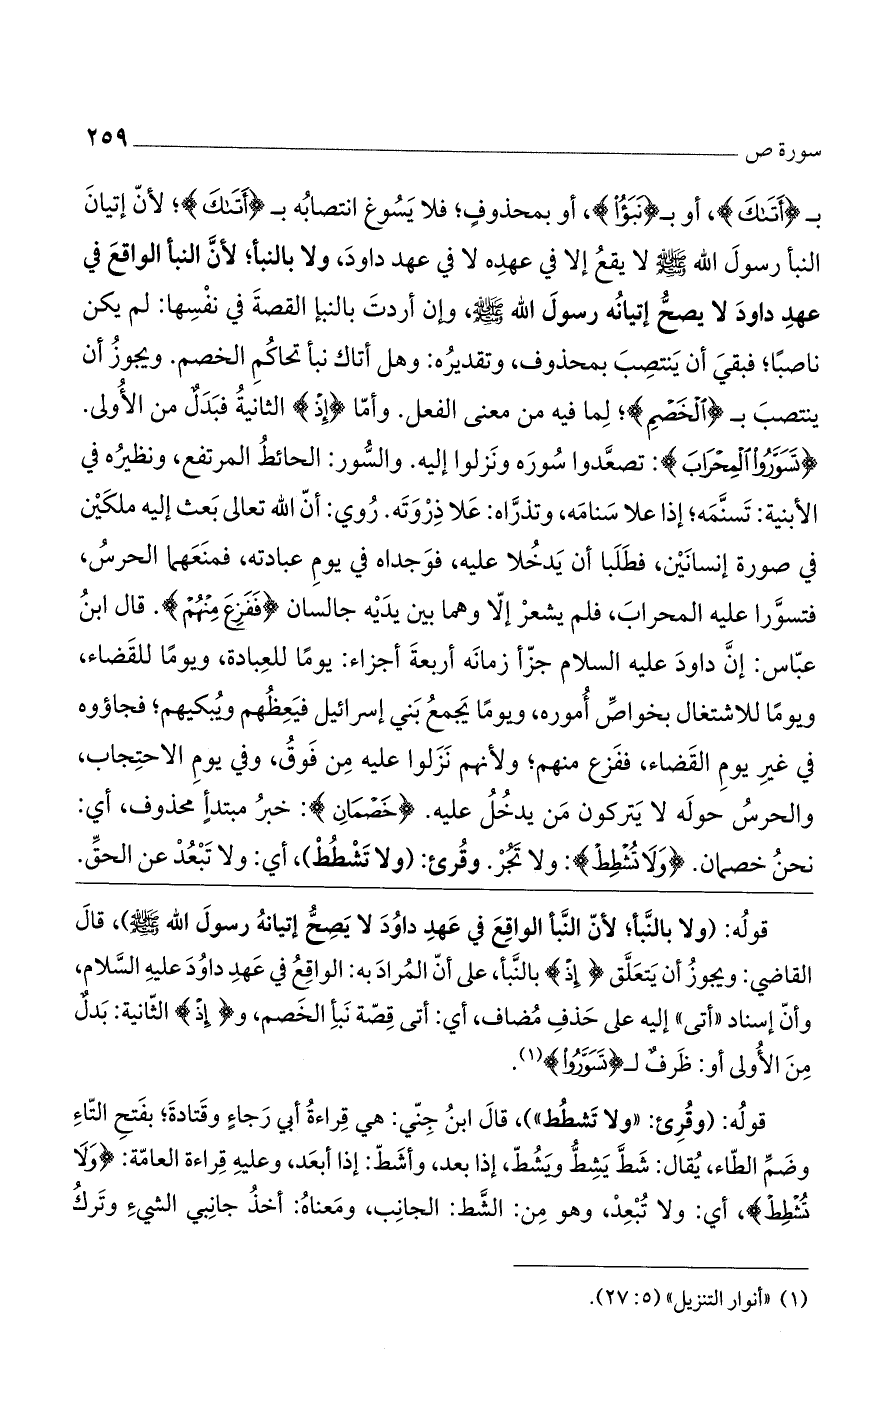 سورة ص ٢٥٩
بـ ﴿أَتَىٰكَ﴾، أو بـ﴿نَبَؤُا﴾، أو بمحذوفٍ؛ فلا يَسُوغ انتصابُه بـ ﴿أَتَىٰكَ﴾؛ لأنّ إتيانَ
النبأ رسولَ الله ﷺ لا يقعُ إلا في عهدِه لا في عهد داودَ، ولا بالنبأ؛ لأنَّ النبأ الواقعَ في
عهدِ داودَ لا يصحُّ إتيانُه رسولَ الله ﷺ، وإن أردتَ بالنبإ القصةَ في نفْسِها: لم يكن
ناصبًا؛ فبقيَ أن يَنتصِبَ بمحذوف، وتقديرُه: وهل أتاك نبأ تحاكُمِ الخصم. ويجوزُ أن
ينتصبَ بـ ﴿ٱلْخَصْمِ﴾؛ لِما فيه من معنى الفعل. وأمّا ﴿إِذْ﴾ الثانيةُ فبَدَلٌ من الأُولى.
﴿تَسَوَّرُوا۟ ٱلْمِحْرَابَ﴾: تصعَّدوا سُورَه ونَزلوا إليه. والسُّور: الحائطُ المرتفع، ونظيرُه في
الأبنية: تَسنَّمَه؛ إذا علا سَنامَه، وتذرَّاه: عَلا ذِرْوَتَه. رُوي: أنّ الله تعالى بَعث إليه ملكَيْن
في صورة إنسانَيْن، فطلَبا أن يَدخُلا عليه، فوَجداه في يومِ عبادته، فمنَعَهما الحرسُ،
فتسوَّرا عليه المحرابَ، فلم يشعرْ إلّا وهما بين يدَيْه جالسان ﴿فَفَزِعَ مِنْهُمْ﴾. قال ابنُ
عبّاس: إنَّ داودَ عليه السلام جزّأ زمانَه أربعةَ أجزاء: يومًا للعِبادة، ويومًا للقَضاء،
ويومًا للاشتغال بخواصِّ أُموره، ويومًا يَجمعُ بَني إسرائيل فيَعِظُهم ويُبكيهم؛ فجاؤوه
في غيرِ يومِ القَضاء، ففَزع منهم؛ ولأنهم نَزَلوا عليه مِن فَوقُ، وفي يومِ الاحتِجاب،
والحرسُ حولَه لا يَتركون مَن يدخُلُ عليه. ﴿خَصْمَانِ﴾: خبرُ مبتدأ محذوف، أي:
نحنُ خصمان. ﴿وَلَا تُشْطِطْ﴾: ولا تَجُرْ. وقُرئ: (ولا تَشْطُطْ)، أي: ولا تَبْعُدْ عن الحقِّ.
قولُه: (ولا بالنَّبأ؛ لأنّ النَّبأ الواقِعَ في عَهدِ داوُدَ لا يَصِحُّ إتيانهُ رسولَ الله ﷺ)، قالَ
القاضي: ويجوزُ أن يَتعَلَّق ﴿إِذْ﴾ بالنَّبأ، على أنّ المُرادَ به: الواقِعُ في عَهدِ داوُدَ عليهِ السَّلام،
وأنّ إسناد «أتى» إليه على حَذفِ مُضاف، أي: أتى قِصّة نَبأِ الخَصم، و﴿إِذْ﴾ الثّانية: بَدلٌ
مِنَ الأُولى أو: ظَرفٌ لـ﴿تَسَوَّرُوا۟﴾(١).
قولُه: (وقُرِئ: «ولا تَشطُط»)، قالَ ابنُ جِنّي: هي قِراءةُ أبي رَجاءٍ وقَتادةَ؛ بفَتحِ التّاءِ
وضَمِّ الطّاء، يُقال: شَطَّ يَشِطُّ ويَشُطّ، إذا بعد، وأشَطّ: إذا أبعَد، وعليهِ قِراءة العامّة: ﴿وَلَا
تُشْطِطْ﴾، أي: ولا تُبْعِدْ، وهو مِن: الشَّط: الجانِب، ومَعناهُ: أخذُ جانِبي الشيءِ وتَركُ
(١) «أنوار التنزيل» (٥: ٢٧).